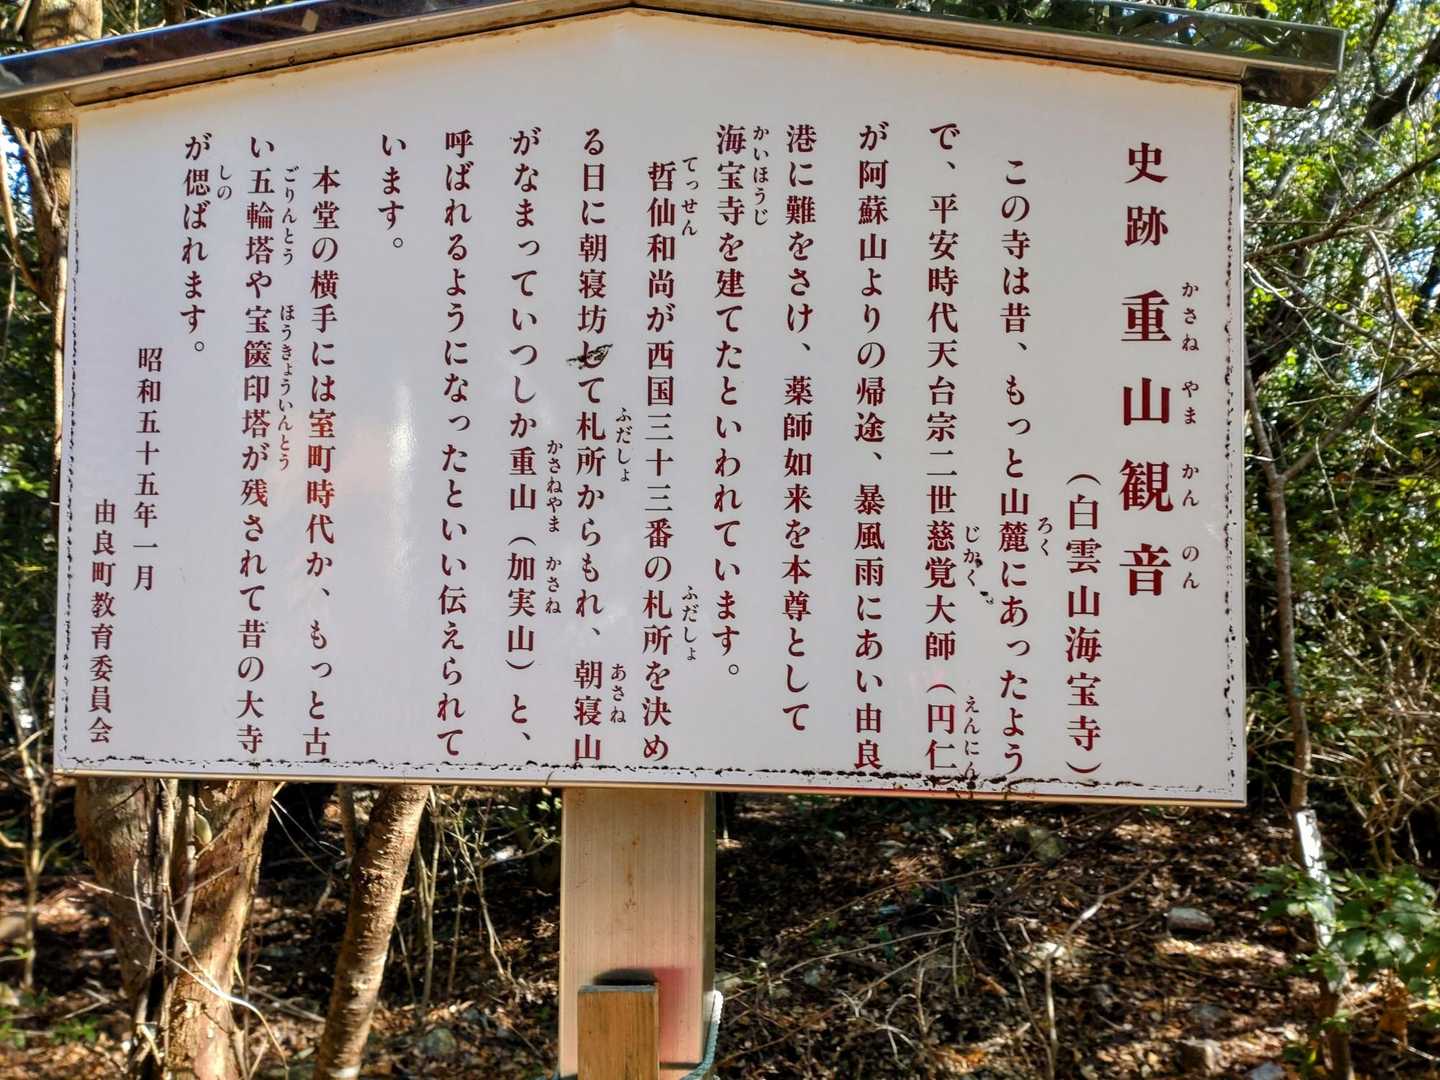 史跡 重山観音
かさね やま かん のん
(白雲山海宝寺)
この寺は昔、もっと山麓にあったよう
ろく
で、平安時代天台宗二世慈覚大師(円仁)
じかく えんにん
が阿蘇山よりの帰途、暴風雨にあい由良
港に難をさけ、薬師如来を本尊として
海宝寺を建てたといわれています。
かいほうじ
哲仙和尚が西国三十三番の札所を決め
てっせん ふだしょ
る日に朝寝坊して札所からもれ、朝寝山
ふだしょ あさね
がなまっていつしか重山(加実山)と、
かさねやま かさね
呼ばれるようになったといい伝えられて
います。
本堂の横手には室町時代か、もっと古
い五輪塔や宝篋印塔が残されて昔の大寺
ごりんとう ほうきょういんとう
が偲ばれます。
しの
昭和五十五年一月
由良町教育委員会